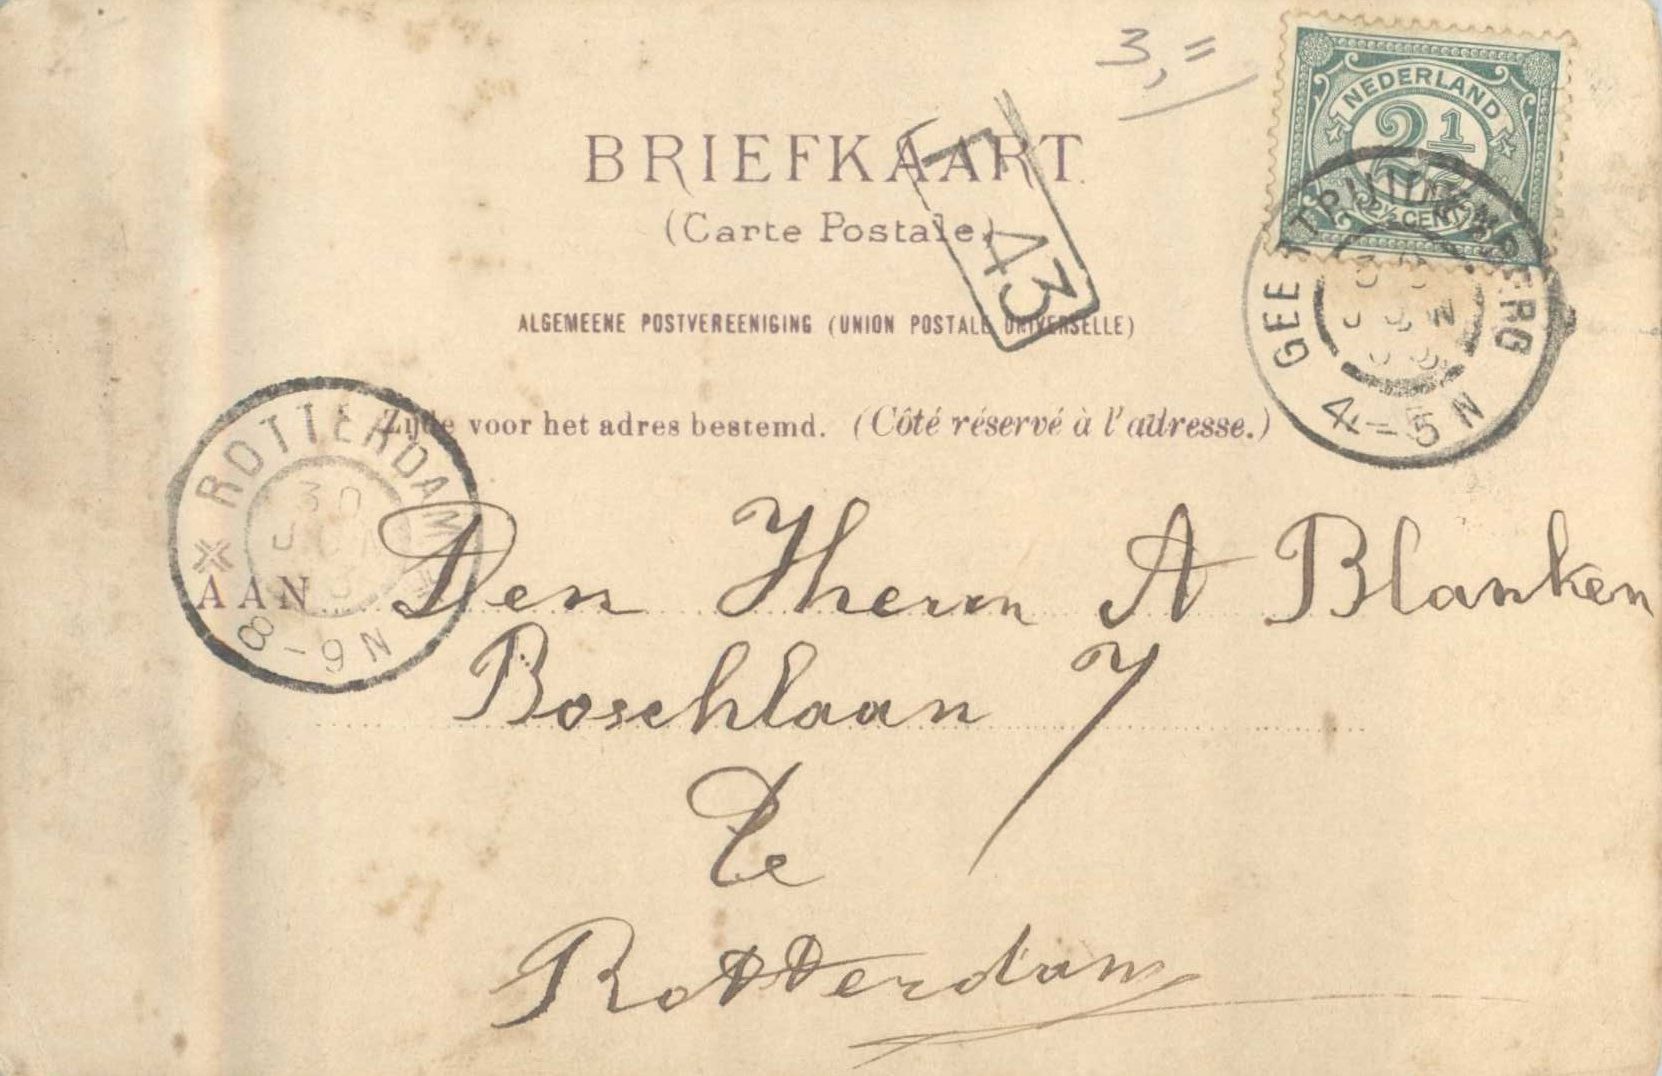 3,=
NEDERLAND
2½
2½ CENT
BRIEFKAART.
(Carte Postale)
43
ALGEMEENE POSTVEREENIGING (UNION POSTALE UNIVERSELLE)
GEERTRUIDENBERG
30
JUN
03
4-5 N
Zijde voor het adres bestemd. (Côté réservé à l'adresse.)
ROTTERDAM
30
JUN
8-9 N
AAN Den Heern A Blanken
Boschlaan 7
Te
Rotterdam